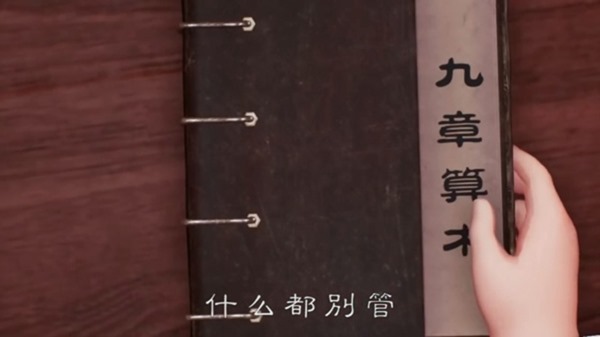 九章算术
什么都别管